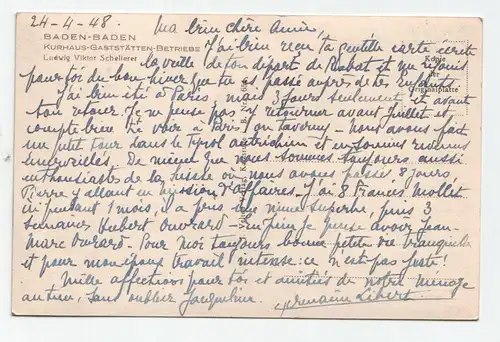 24-4-48.
Ma bien chère Amie,
BADEN-BADEN
KURHAUS-GASTSTÄTTEN-BETRIEBE
Ludwig Viktor Schellerer
J'ai bien reçu ta gentille carte écrite
la veille de ton départ de Rabat et me réjouis
pour toi du bon hiver que tu as passé auprès de tes Enfants
J'ai bien été à Paris, mais 3 jours seulement et avant
ton retour. Je ne pense pas y retourner avant Juillet et
compte bien te voir à Paris ou Taverny - nous avons fait
un petit tour dans le Tyrol autrichien et en sommes revenus
émerveillés. De même que nous sommes toujours aussi
enthousiastes de la Suisse où nous avons passé 8 jours,
Pierre y allant en mission d'affaires. J'ai eu Francis Mollet
ici pendant 1 mois, il a pris une mine superbe, puis 3
semaines Hubert Ouvrard - en juin je pense avoir Jean-
Marc Ouvrard - Pour moi toujours bonne petite vie tranquille
et pour mon époux travail intense : ce n'est pas juste !
Mille affections pour toi et amitiés de notre ménage
au tien, sans oublier Jacqueline.
Germaine Libert
Kopie
der
Originalplatte